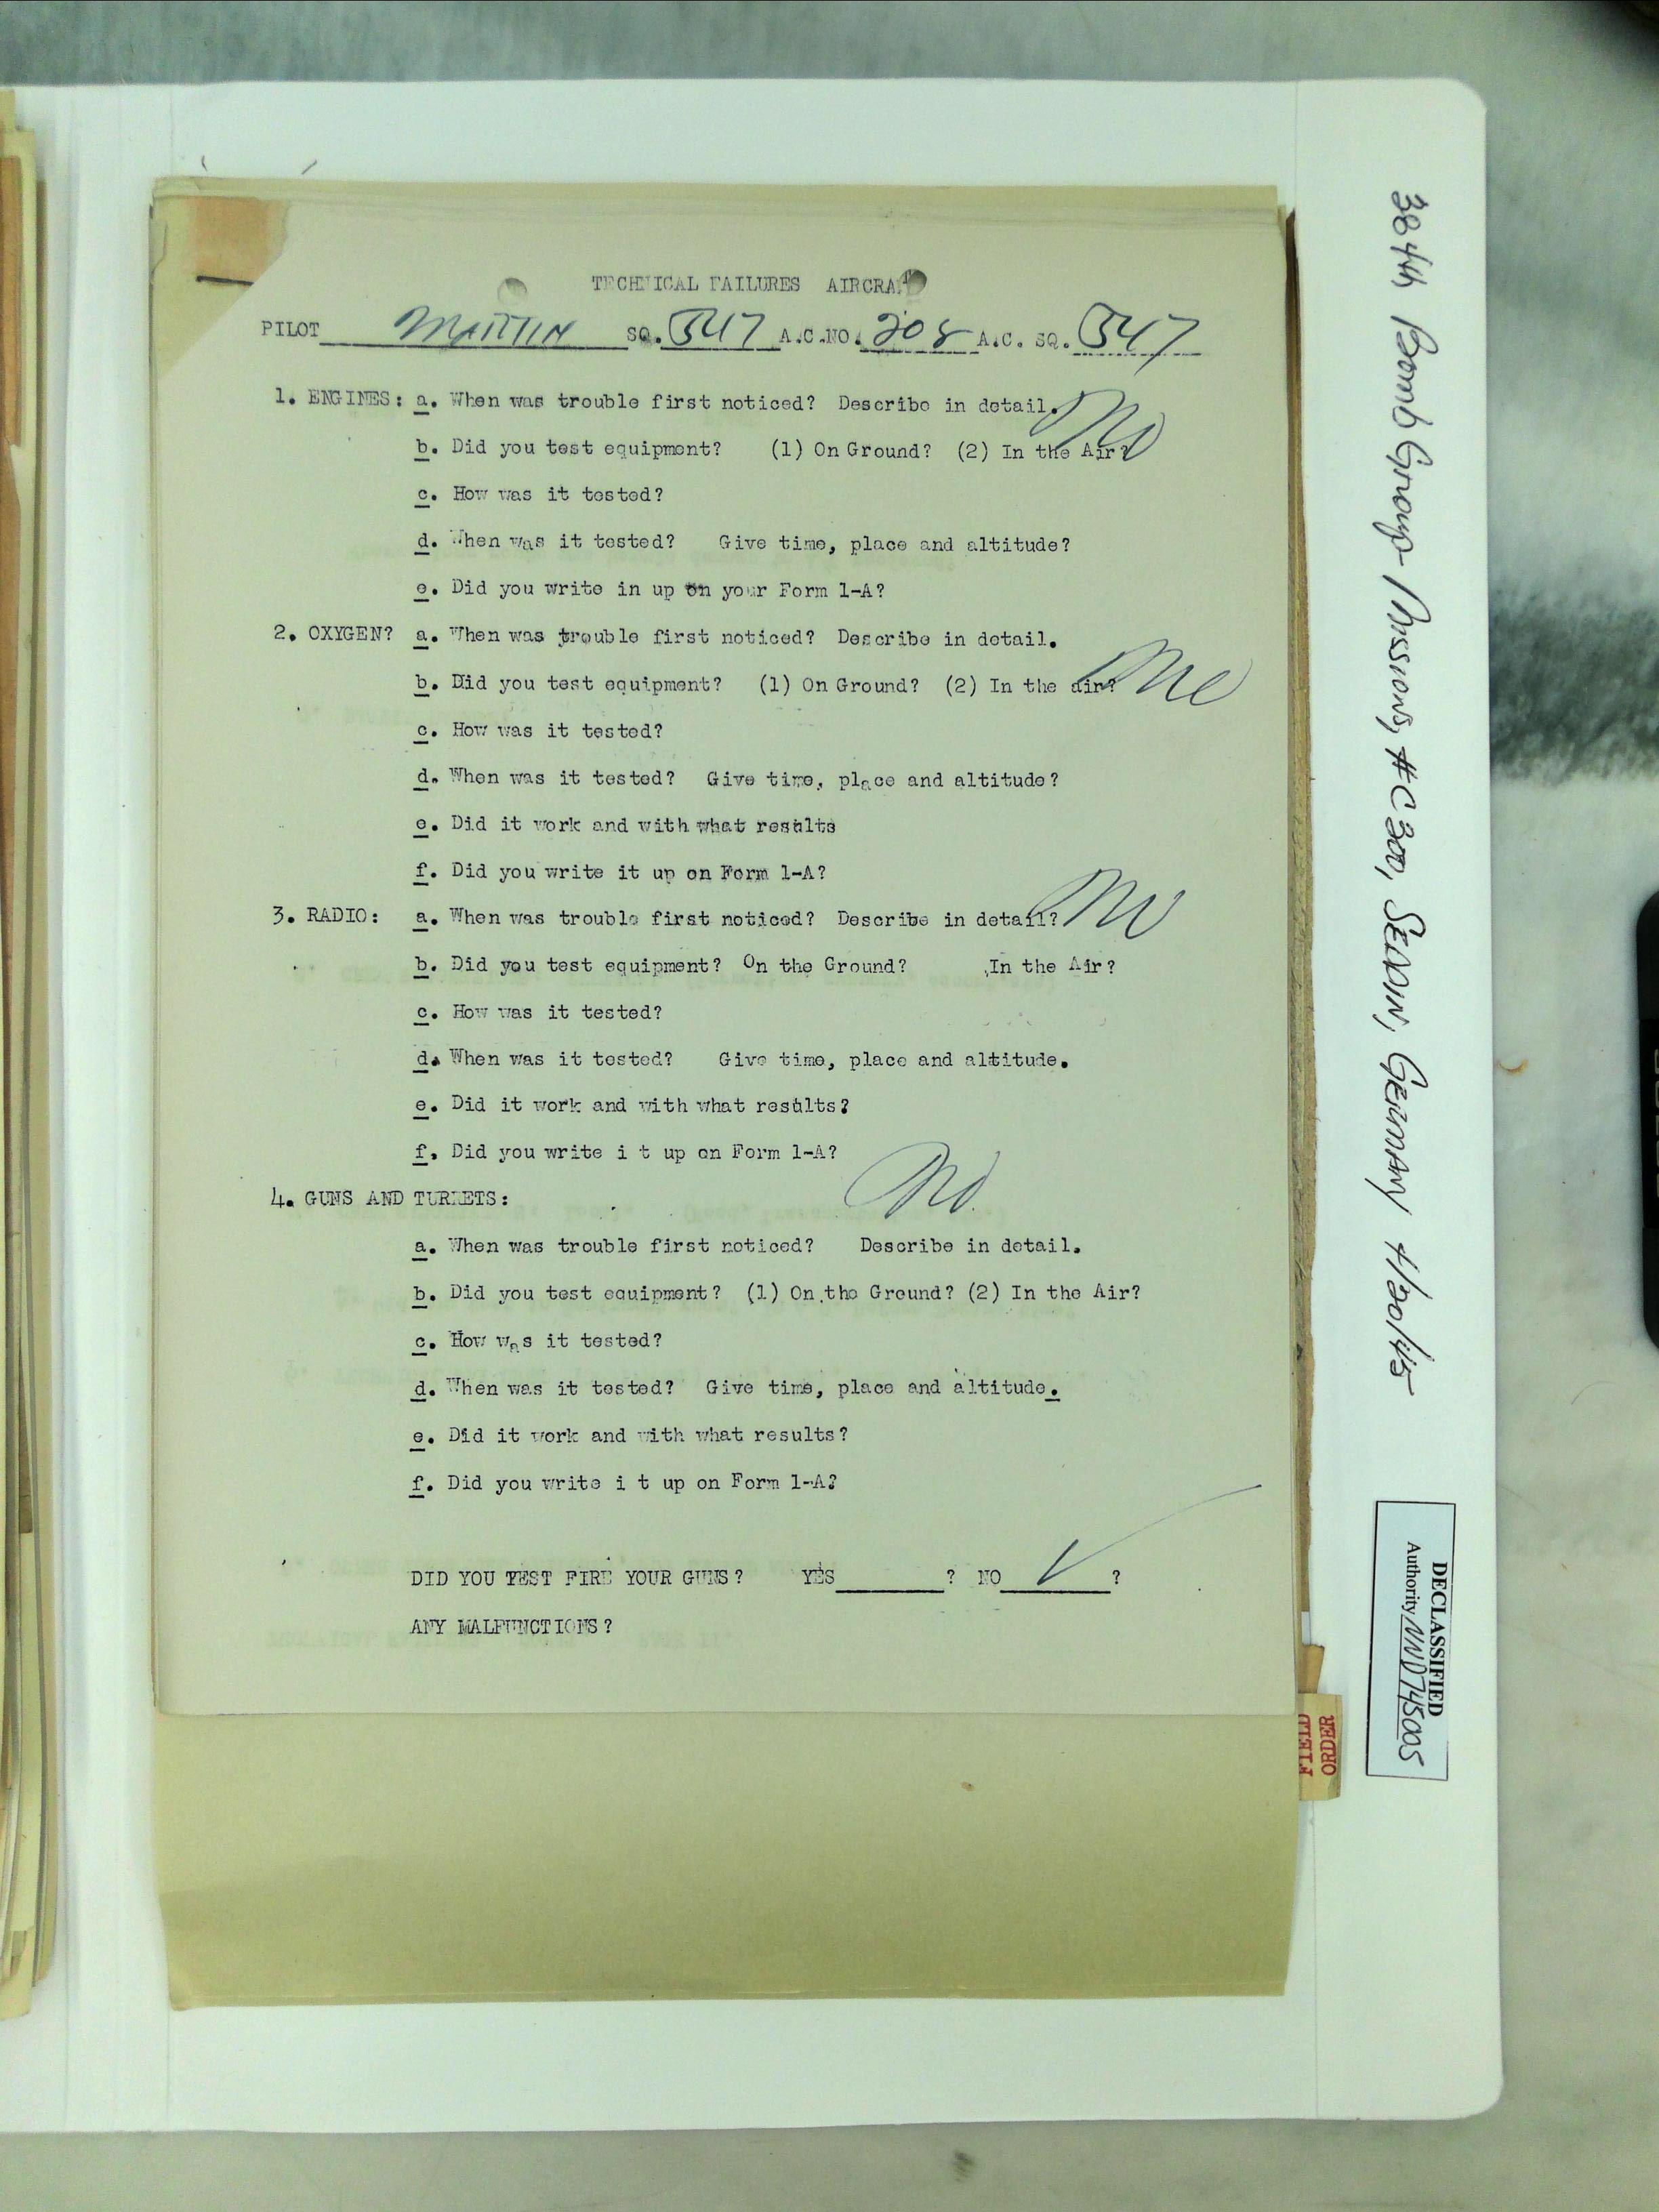 TECHNICAL FAILURES AIRCRA
PILOT MARTIN SQ. 547 A.C.NO. 208 A.C. SQ. 547
1. ENGINES: a. When was trouble first noticed? Describe in detail. No
b. Did you test equipment? (1) On Ground? (2) In the Air?
c. How was it tested?
d. When was it tested? Give time, place and altitude?
e. Did you write in up on your Form 1-A?
2. OXYGEN? a. When was trouble first noticed? Describe in detail.
b. Did you test equipment? (1) On Ground? (2) In the air?
c. How was it tested?
d. When was it tested? Give time, place and altitude?
e. Did it work and with what results
f. Did you write it up on Form 1-A?
3. RADIO: a. When was trouble first noticed? Describe in detail? No
b. Did you test equipment? On the Ground? In the Air?
c. How was it tested?
d. When was it tested? Give time, place and altitude.
e. Did it work and with what results?
f. Did you write i t up on Form 1-A?
4. GUNS AND TURRETS: No.
a. When was trouble first noticed? Describe in detail.
b. Did you test equipment? (1) On the Ground? (2) In the Air?
c. How was it tested?
d. When was it tested? Give time, place and altitude.
e. Did it work and with what results?
f. Did you write i t up on Form 1-A?
DID YOU TEST FIRE YOUR GUNS? YES ? NO ✓ ?
ANY MALFUNCTIONS?
384th Bomb Group- Missions, #C300, SEDDIN, GERMANY 4/20/45
DECLASSIFIED
Authority NND745005
FIELD
ORDER